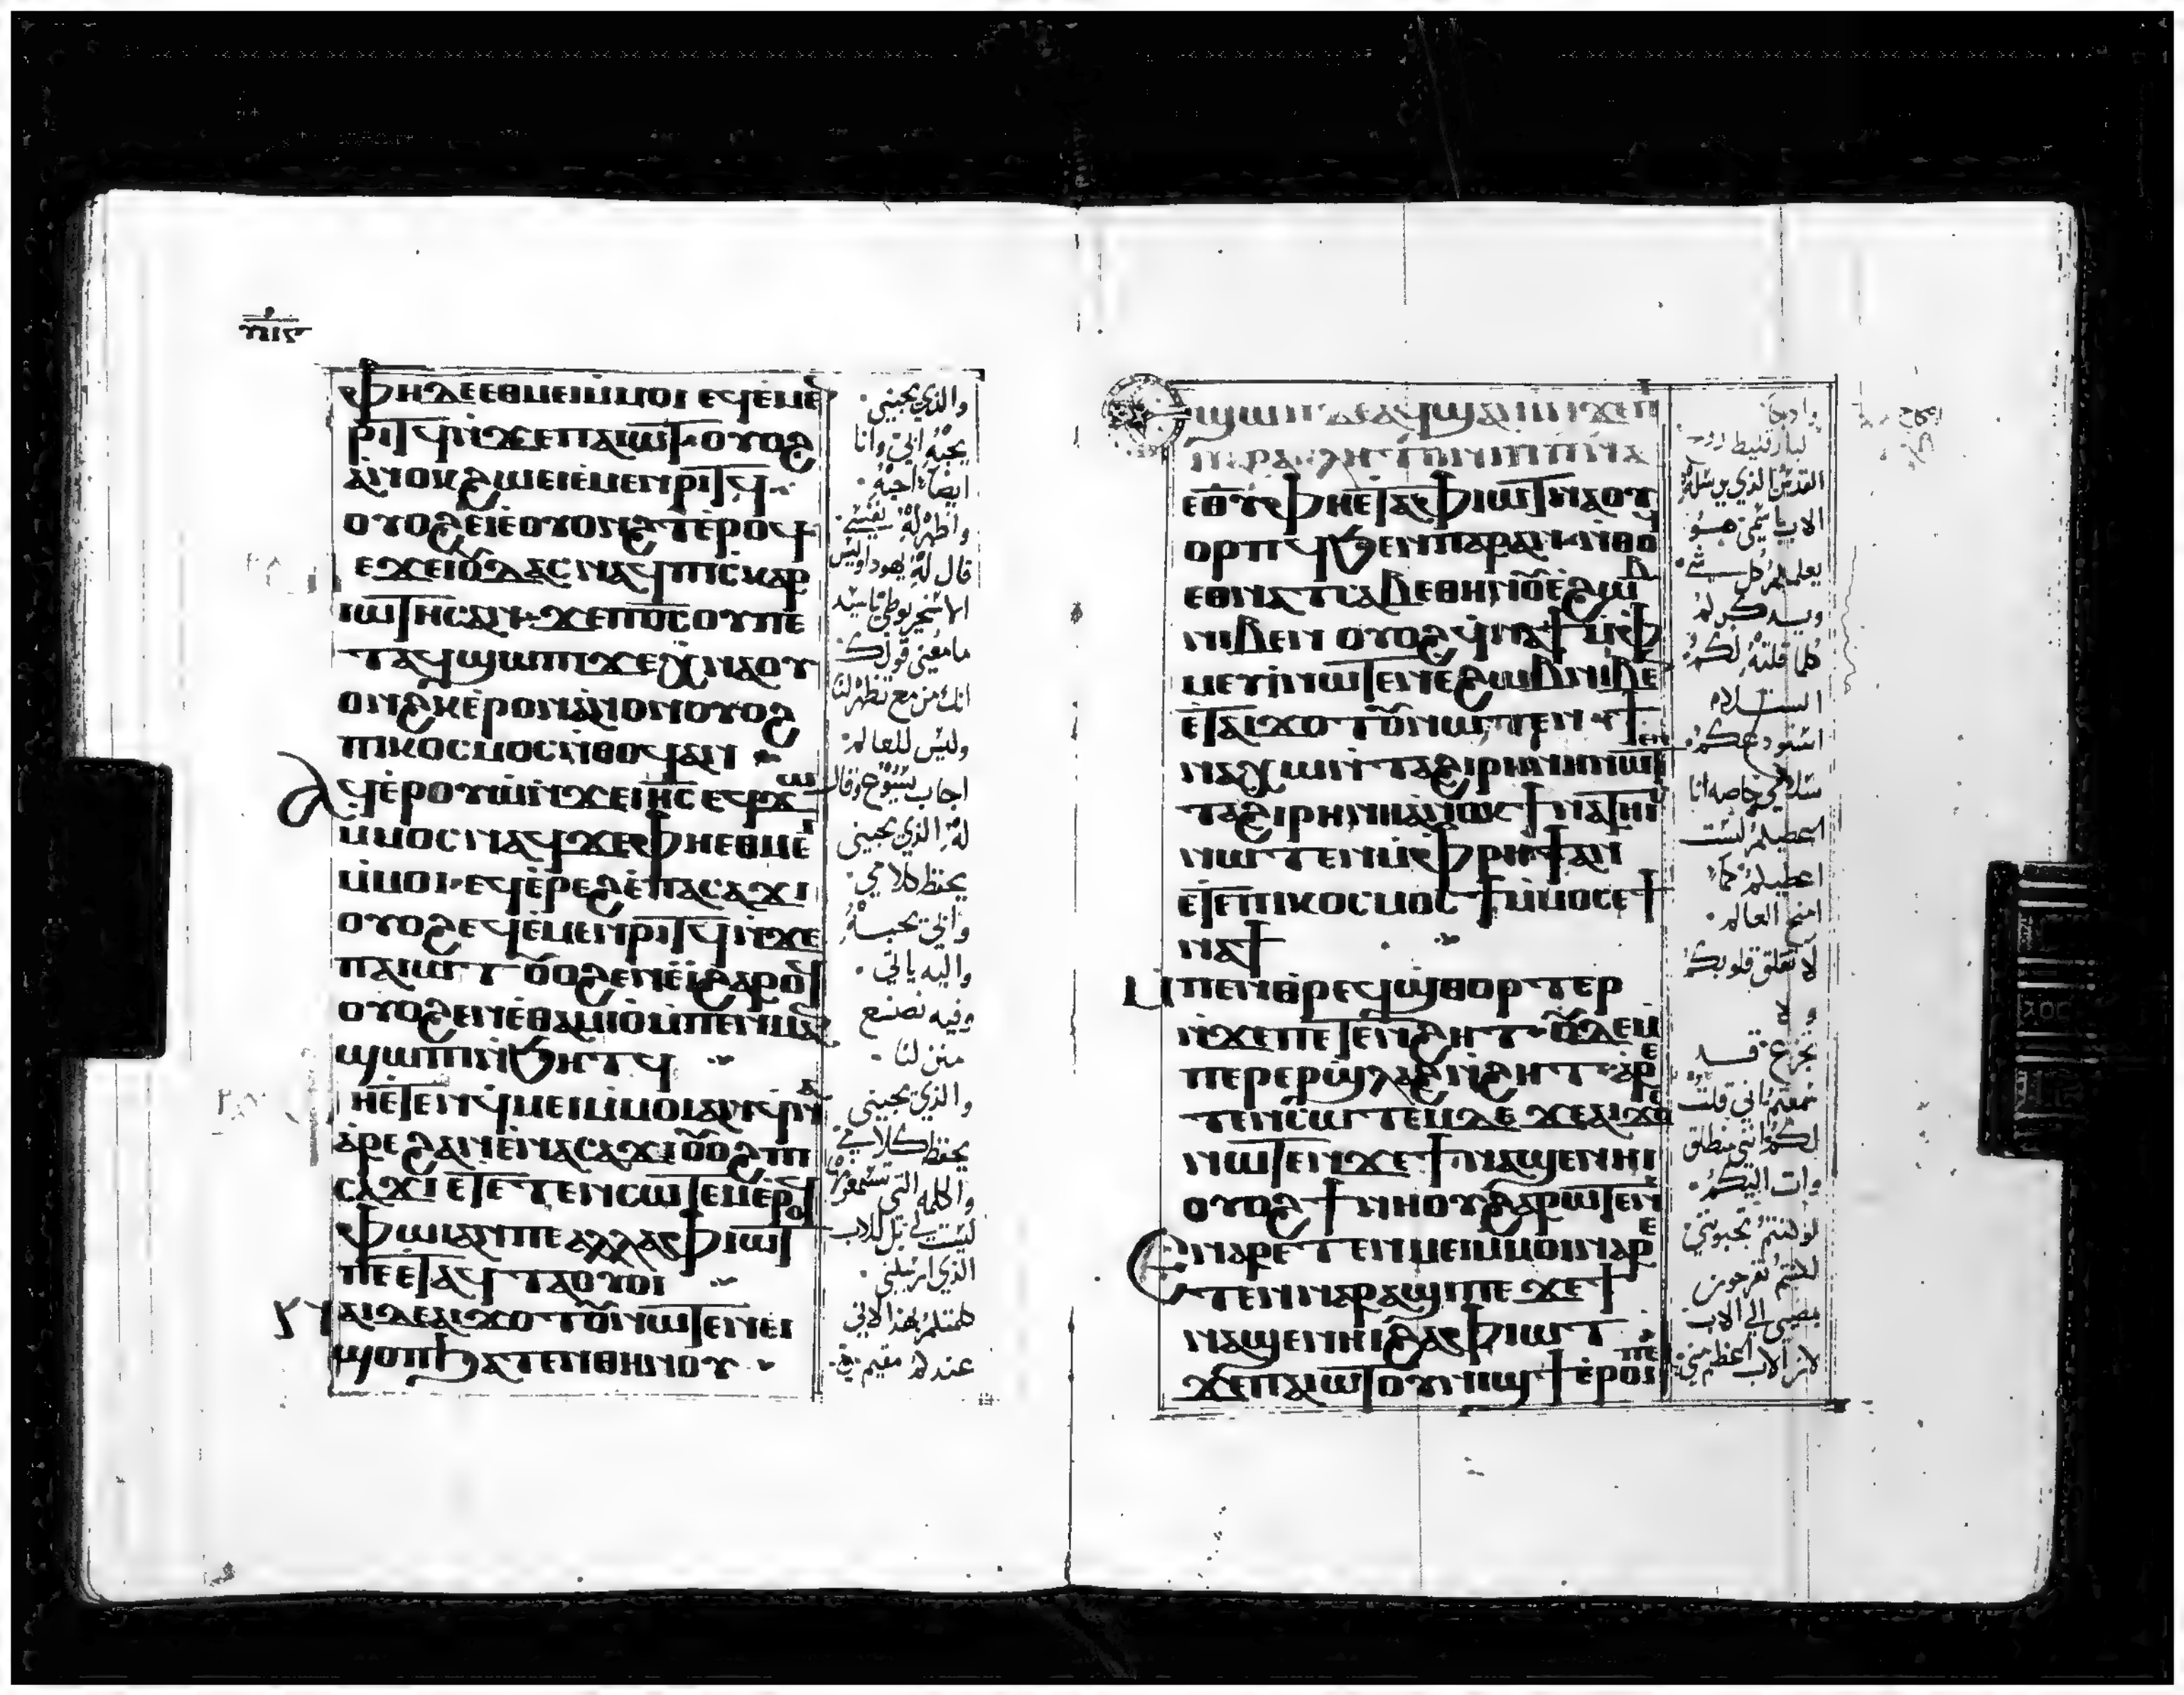 ⲫⲏⲇⲉⲉⲑⲙⲉⲓⲙ̀ⲙⲟⲓ ⲉϥⲉ̀ⲙⲉ
ⲣⲓⲧϥⲛ̀ϫⲉⲡⲁⲓⲱⲧ ⲟⲩⲟϩ
ⲁ̀ⲛⲟⲕϩⲱⲉⲓⲉ̀ⲙⲉⲛⲣⲓⲧϥ
ⲟⲩⲟϩⲉⲓⲉ̀ⲟⲩⲟⲛϩⲧⲉ̀ⲣⲟϥ
ⲡⲉϫⲉⲓⲟⲩⲇⲁⲥⲛⲁϥⲡⲓⲥⲕⲁⲣ
ⲓⲱⲧⲏⲥⲁⲛ ϫⲉⲡⲟ̅ⲥ̅ⲟⲩⲡⲉ
ⲧⲁϥϣⲱⲡⲓϫⲉⲭⲛⲁⲟⲩ
ⲟⲛϩⲕⲉ̀ⲣⲟⲛⲁ̀ⲛⲟⲛⲟⲩⲟϩ
ⲡⲓⲕⲟⲥⲙⲟⲥⲛ̀ⲑⲟϥⲁⲛ
ⲁϥⲉ̀ⲣⲟⲩⲱ̀ⲛ̀ϫⲉⲓⲏ̅ⲥ̅ ⲉϥϫⲱ
ⲙ̀ⲙⲟⲥⲛⲁϥϫⲉⲫⲏⲉⲑⲙⲉⲓ
ⲙ̀ⲙⲟⲓ ⲉϥⲉ̀ⲣⲉϩⲉ̀ⲡⲁⲥⲁϫⲓ
ⲟⲩⲟϩⲉϥⲉ̀ⲙⲉⲛⲣⲓⲧϥⲛ̀ϫⲉ
ⲡⲁⲓⲱⲧ ⲟⲩⲟϩⲉⲛⲉ̀ⲓ̀ϩⲁⲣⲟϥ
ⲟⲩⲟϩⲉⲛⲉ̀ⲑⲁⲙⲓⲟ̀ⲙ̀ⲡⲉⲛⲙⲁⲛ
ϣⲱⲡⲓⲛ̀ϧⲏⲧϥ
ⲫⲏⲉ̀ⲧⲉⲛϥⲙⲉⲓⲙ̀ⲙⲟⲓⲁⲛϥⲛⲁ
ⲁ̀ⲣⲉϩⲁⲛⲉ̀ⲛⲁⲥⲁϫⲓ ⲟⲩⲟϩⲡⲓ
ⲥⲁϫⲓ ⲉ̀ⲧⲉⲧⲉⲛⲥⲱⲧⲉⲙⲉ̀ⲣⲟϥ
ⲫⲱⲓⲁⲛⲡⲉⲁⲗⲗⲁⲫⲁⲫⲓⲱⲧ
ⲡⲉⲉ̀ⲧⲁϥⲧⲁⲟⲩⲟⲓ
ⲛⲁⲓⲇⲉⲁⲓϫⲟⲧⲟⲩⲛⲱⲧⲉⲛⲉⲓ
ϣⲟⲡϧⲁⲧⲉⲛⲑⲏⲛⲟⲩ
والذي يحبني
يحبه ابي وانا
ايضا احبه
واظهر له نفسي
قال له يهودا وليس
الاسخريوطي يا سيد
ما معنى قولك
انك مزمع تظهر لنا
وليس للعالم
اجاب يسوع وقال
له الذي يحبني
يحفظ كلامي
وابي يحبه
واليه ياتي
وفيه نصنع
منزلنا
والذي يحبني
يحفظ كلامي
والكلمه التي تسمعون
ليست لي بل للاب
الذي ارسلني
كلمتكم بهذا لاني
عندكم مقيم
ⲉϣⲱⲡⲇⲉⲁϥϣⲁⲛⲓ̀ⲛ̀ϫⲉⲡⲓ
ⲡⲁⲣⲁⲕⲗⲏⲧⲟⲛⲡⲓⲡⲛ̅ⲁ̅
ⲉⲑⲩⲫⲏⲉ̀ⲧⲁⲫⲓⲱⲧⲛⲁⲟⲩ
ⲟⲣⲡϥϧⲉⲛⲡⲁⲣⲁⲛ ⲛ̀ⲑⲟϥ
ⲉⲑⲛⲁⲧⲥⲁⲃⲉⲑⲏⲛⲟⲩⲉ̀ϩⲱⲃ
ⲛⲓⲃⲉⲛ ⲟⲩⲟϩϥⲛⲁϯⲙ̀ⲫ
ⲙⲉⲩⲓ̀ⲛⲱⲧⲉⲛⲉ̀ϩⲱⲃⲛⲓⲃⲉ
ⲉ̀ⲧⲁⲓϫⲟⲧⲟⲩⲛⲱⲧⲉⲛ ϯ
ⲛⲁⲭⲱⲛ̀ⲧⲁϩⲓⲣⲏⲛⲏⲛⲱⲧⲉⲛ
ⲧⲁϩⲓⲣⲏⲛⲏⲁ̀ⲛⲟⲕϯⲛⲁⲧⲏⲓⲥ
ⲛⲱⲧⲉⲛⲙ̀ⲫⲣⲏϯⲁⲛ
ⲉ̀ⲧⲉⲡⲓⲕⲟⲥⲙⲟⲥϯⲙ̀ⲙⲟⲥⲉϯ
ⲛⲁϯ
ⲙ̀ⲡⲉⲛⲑⲣⲉϥϣⲑⲟⲣⲧⲉⲣ
ⲛ̀ϫⲉⲡⲉⲧⲉⲛϩⲏⲧ ⲟⲩⲇⲉⲙ
ⲡⲉⲣⲉⲣϣⲗⲁϩⲛ̀ϩⲏⲧ ⲁ̀ⲣⲉ
ⲧⲉⲛⲥⲱⲧⲉⲙⲇⲉ ϫⲉⲁⲓϫⲟⲥ
ⲛⲱⲧⲉⲛϫⲉϯⲛⲁϣⲉⲛⲏⲓ
ⲟⲩⲟϩϯⲛⲏⲟⲩϩⲁⲣⲱⲧⲉⲛ
ⲉⲛⲁⲣⲉⲧⲉⲛⲙⲉⲓⲙ̀ⲙⲟⲓⲛⲁⲣⲉ
ⲧⲉⲛⲛⲁⲣⲁϣⲓⲡⲉ ϫⲉϯ
ⲛⲁϣⲉⲛⲏⲓϩⲁⲫⲓⲱⲧ
ϫⲉⲡⲁⲓⲱⲧⲟⲩⲛⲓϣϯⲉ̀ⲣⲟⲓⲡⲉ
واذا جا
البارقليط روح
القدس الذي يرسله
الاب باسمي هو
يعلمكم كل شي
ويذكركم
كلما قلته لكم
السلام
استودعكم
سلامي خاصه انا
اعطيكم ليست
اعطيكم كما
امنح العالم
لا تقلق قلوبكم
ولا
تجزع قد
سمعتم اني قلت
لكم اني منطلق
وات اليكم
لو كنتم تحبوني
لكنتم تفرحون
بمضيي الى الاب
لان الاب اعظم مني